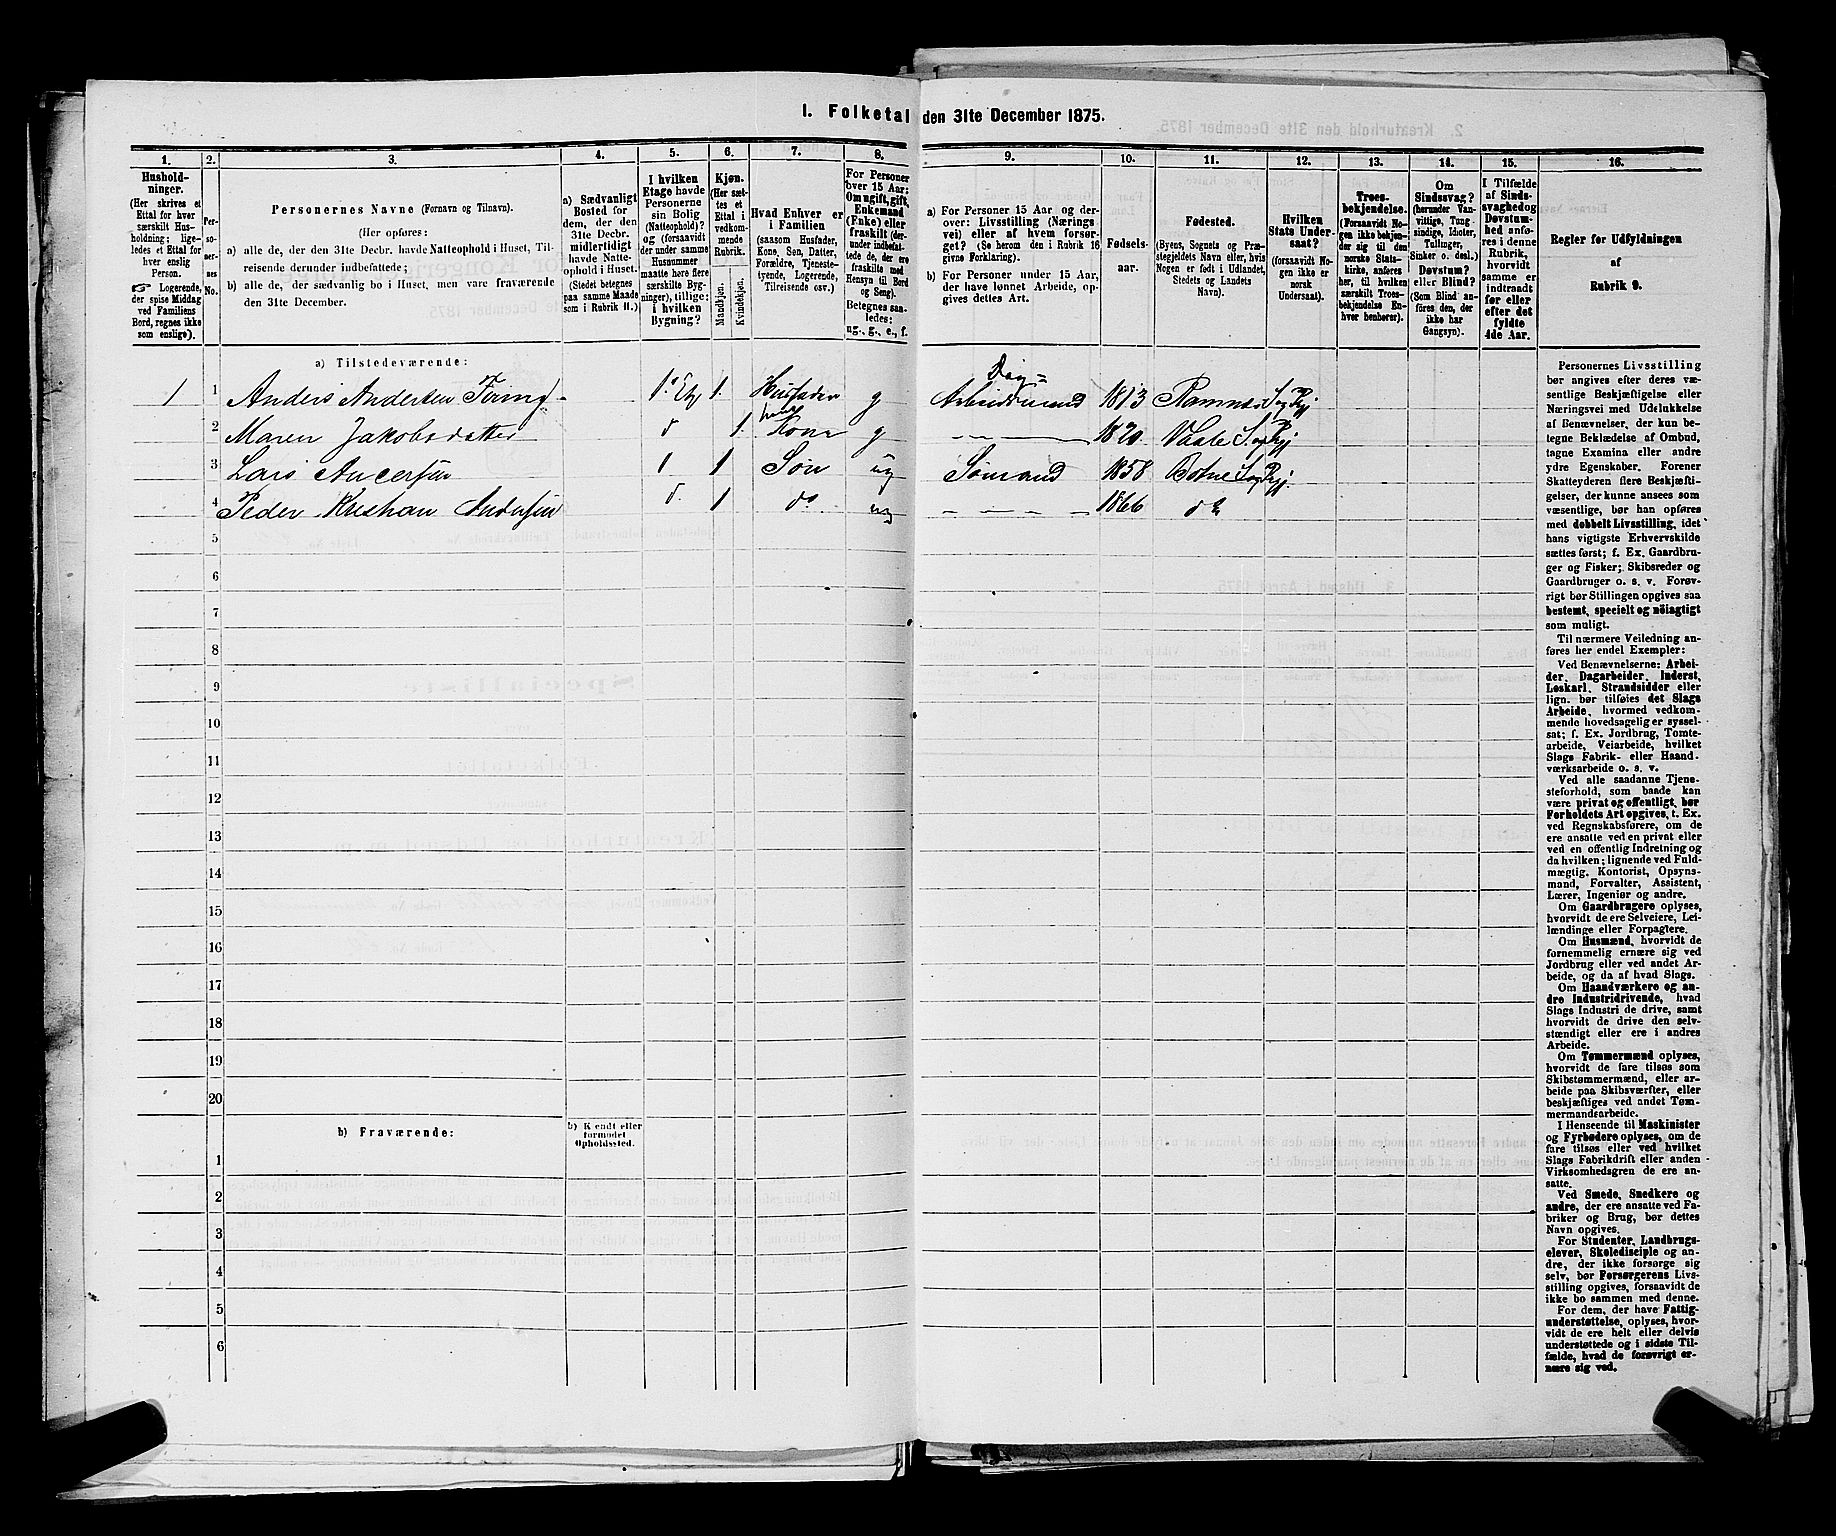 I. Folketal den 31te December 1875.
1. 2. 3. 4. 5. 6. 7. 8. 9. 10. 11. 12. 13. 14. 15. 16.
Hushold-
ninger.
(Her skrives et
Ettal for hver
særskilt Hus-
holdning; lige-
ledes et Ettal for
hver enslig
Person.
☞ Logerende,
der spise Middag
ved Familiens
Bord, regnes ikke
som enslige).
Per-
so-
ner-
nes
No.
Personernes Navne (Fornavn og Tilnavn).
(Her opføres:
a) alle de, der den 31te Decbr. havde Natteophold i Huset, Til-
reisende derunder indbefattede;
b) alle de, der sædvanlig bo i Huset, men vare fraværende
den 31te December.
a) Sædvanligt
Bosted for
dem, der den
31te Decbr.
midlertidigt
havde Natte-
ophold i Huset.
(Stedet betegnes
paa samme Maade
som i Rubrik 11.)
I hvilken
Etage havde
Personerne
sin Bolig
(Natteophold)?
og (forsaavidt
der under samme
Husnummer
maatte høre flere
særskilte Byg-
ninger), tillige:
i hvilken
Bygning?
Kjøn.
(Her sæt-
tes et
Ettal i
vedkom-
mende
Rubrik.
Mandkjøn.
Kvindekjøn.
Hvad Enhver er
i Familien
(saasom Husfader,
Kone, Søn, Datter,
Forældre, Tjeneste-
tyende, Logerende,
Tilreisende osv.)
For Personer
over 15 Aar:
Om ugift, gift,
Enkemand
(Enke) eller
fraskilt (der-
under indbefat-
tede de, der ere
fraskilte med
Hensyn til Bord
og Seng).
Betegnes saa-
ledes:
ug., g., e., f.
a) For Personer 15 Aar og der-
over: Livsstilling (Nærings
vei) eller af hvem forsør-
get? (Se herom den i Rubrik 16
givne Forklaring).
b) For Personer under 15 Aar,
der have lønnet Arbeide, op-
gives dettes Art.
Fødsels-
aar.
Fødested.
(Byens, Sognets og Præ-
stegjeldets Navn eller, hvis
Nogen er født i Udlandet,
Stedets og Landets
Navn).
Hvilken
Stats Under-
saat?
(forsaavidt No-
gen ikke er
norsk
Undersaat).
Troes-
bekjendelse.
(Forsaavidt No-
gen ikke bekjen-
der sig til den
norske Stats-
kirke, anføres
her, til hvilken
særskilt Troes-
bekjendelse En-
hver henhører).
Om
Sindssvag?
(herunder Van-
vittige, Tung-
sindige, Idioter,
Tullinger,
Sinker o. desl.)
Døvstum?
eller Blind?
(Som Blind an-
føres den, der
ikke har
Gangsyn).
I Tilfælde
af Sinds-
svaghed og
Døvstum-
hed anfø-
res i denne
Rubrik,
hvorvidt
samme er
indtraadt
før eller
efter det
fyldte
4de Aar.
Regler for Udfyldningen
af
Rubrik 9.
a) Tilstedeværende:
1 1 Anders Andersen 1. Etg 1. Husfader g Dag= Arbeidsmand 1813 Ramnæs S og Pgj
2 Maren Jakobsdatter d 1. hans Kone g — — — 1820 Vaale S og Pgj
3 Lars Andersen 1 Søn ug Sømand 1858 Botne S og Pgj.
4 Peder Kristian Andersen d. 1 do ug — — — 1866 do
5
6
7
8
9
10
11
12
13
14
15
16
17
18
19
20
b) Fraværende:
b) Kjendt eller
formodet
Opholdssted.
1
2
3
4
5
6
Personernes Livsstilling
bør angives efter deres væ-
sentlige Beskjæftigelse eller
Næringsvei med Udelukkelse
af Benævnelser, der kun be-
tegne Beklædelse af Ombud,
tagne Examina eller andre
ydre Egenskaber. Forener
Skatteyderen flere Beskjæfti-
gelser, der kunne ansees som
væsentlige, bør han opføres
med dobbelt Livsstilling, idet
hans vigtigste Erhvervskilde
sættes først; f. Ex. Gaardbru-
ger og Fisker; Skibsreder og
Gaardbruger o. s. v. Forøv-
rigt bør Stillingen opgives saa
bestemt, specielt og nöiagtigt
som muligt.
Til nærmere Veiledning an-
føres her endel Exempler:
Ved Benævnelserne: Arbei-
der, Dagarbeider, Inderst,
Løskarl, Strandsidder eller
lign. bør tilføies det Slags
Arbeide, hvormed vedkom-
mende hovedsagelig er syssel-
sat; f. Ex. Jordbrug, Tomte-
arbeide, Veiarbeide, hvilket
Slags Fabrik- eller Haand-
værksarbeide o. s. v.
Ved alle saadanne Tjene-
steforhold, som baade kan
være privat og offentligt, bør
Forholdets Art opgives, t. Ex.
ved Regnskabsførere, om de
ere ansatte ved en privat eller
ved en offentlig Indretning og
da hvilken; lignende ved Fuld-
mægtig, Kontorist, Opsyns-
mand, Forvalter, Assistent,
Lærer, Ingeniør og andre.
Om Gaardbrugere oplyses,
hvorvidt de ere Selveiere, Lei-
lændinge eller Forpagtere.
Om Husmænd, hvorvidt de
fornemmelig ernære sig ved
Jordbrug eller ved andet Ar-
beide, og da af hvad Slags.
Om Haandværkere og an-
dre Industridrivende, hvad
Slags Industri de drive, samt
hvorvidt de drive den selv-
stændigt eller ere i andres
Arbeide.
Om Tømmermænd oplyses,
hvorvidt de fare tilsøs som
Skibstømmermænd, eller ar-
beide paa Skibsværfter, eller
beskjæftiges ved andet Tøm-
mermandsarbeide.
I Henseende til Maskinister
og Fyrbødere oplyses, om de
fare tilsøs eller ved hvilket
Slags Fabrikdrift eller anden
Virksomhedsgren de ere an-
satte.
Ved Smede, Snedkere og
andre, der ere ansatte ved Fa-
briker og Brug, bør dettes
Navn opgives.
For Studenter, Landbrugs-
elever, Skoledisciple og an-
dre, der ikke forsørge sig
selv, bør Forsørgerens Livs-
stilling opgives, forsaavidt de
ikke bo sammen med denne.
For dem, der have Fattig-
understøttelse, oplyses, hvor-
vidt de ere helt eller delvis
understøttede og i sidste Til-
fælde, hvad de forøvrigt er-
nære sig ved.